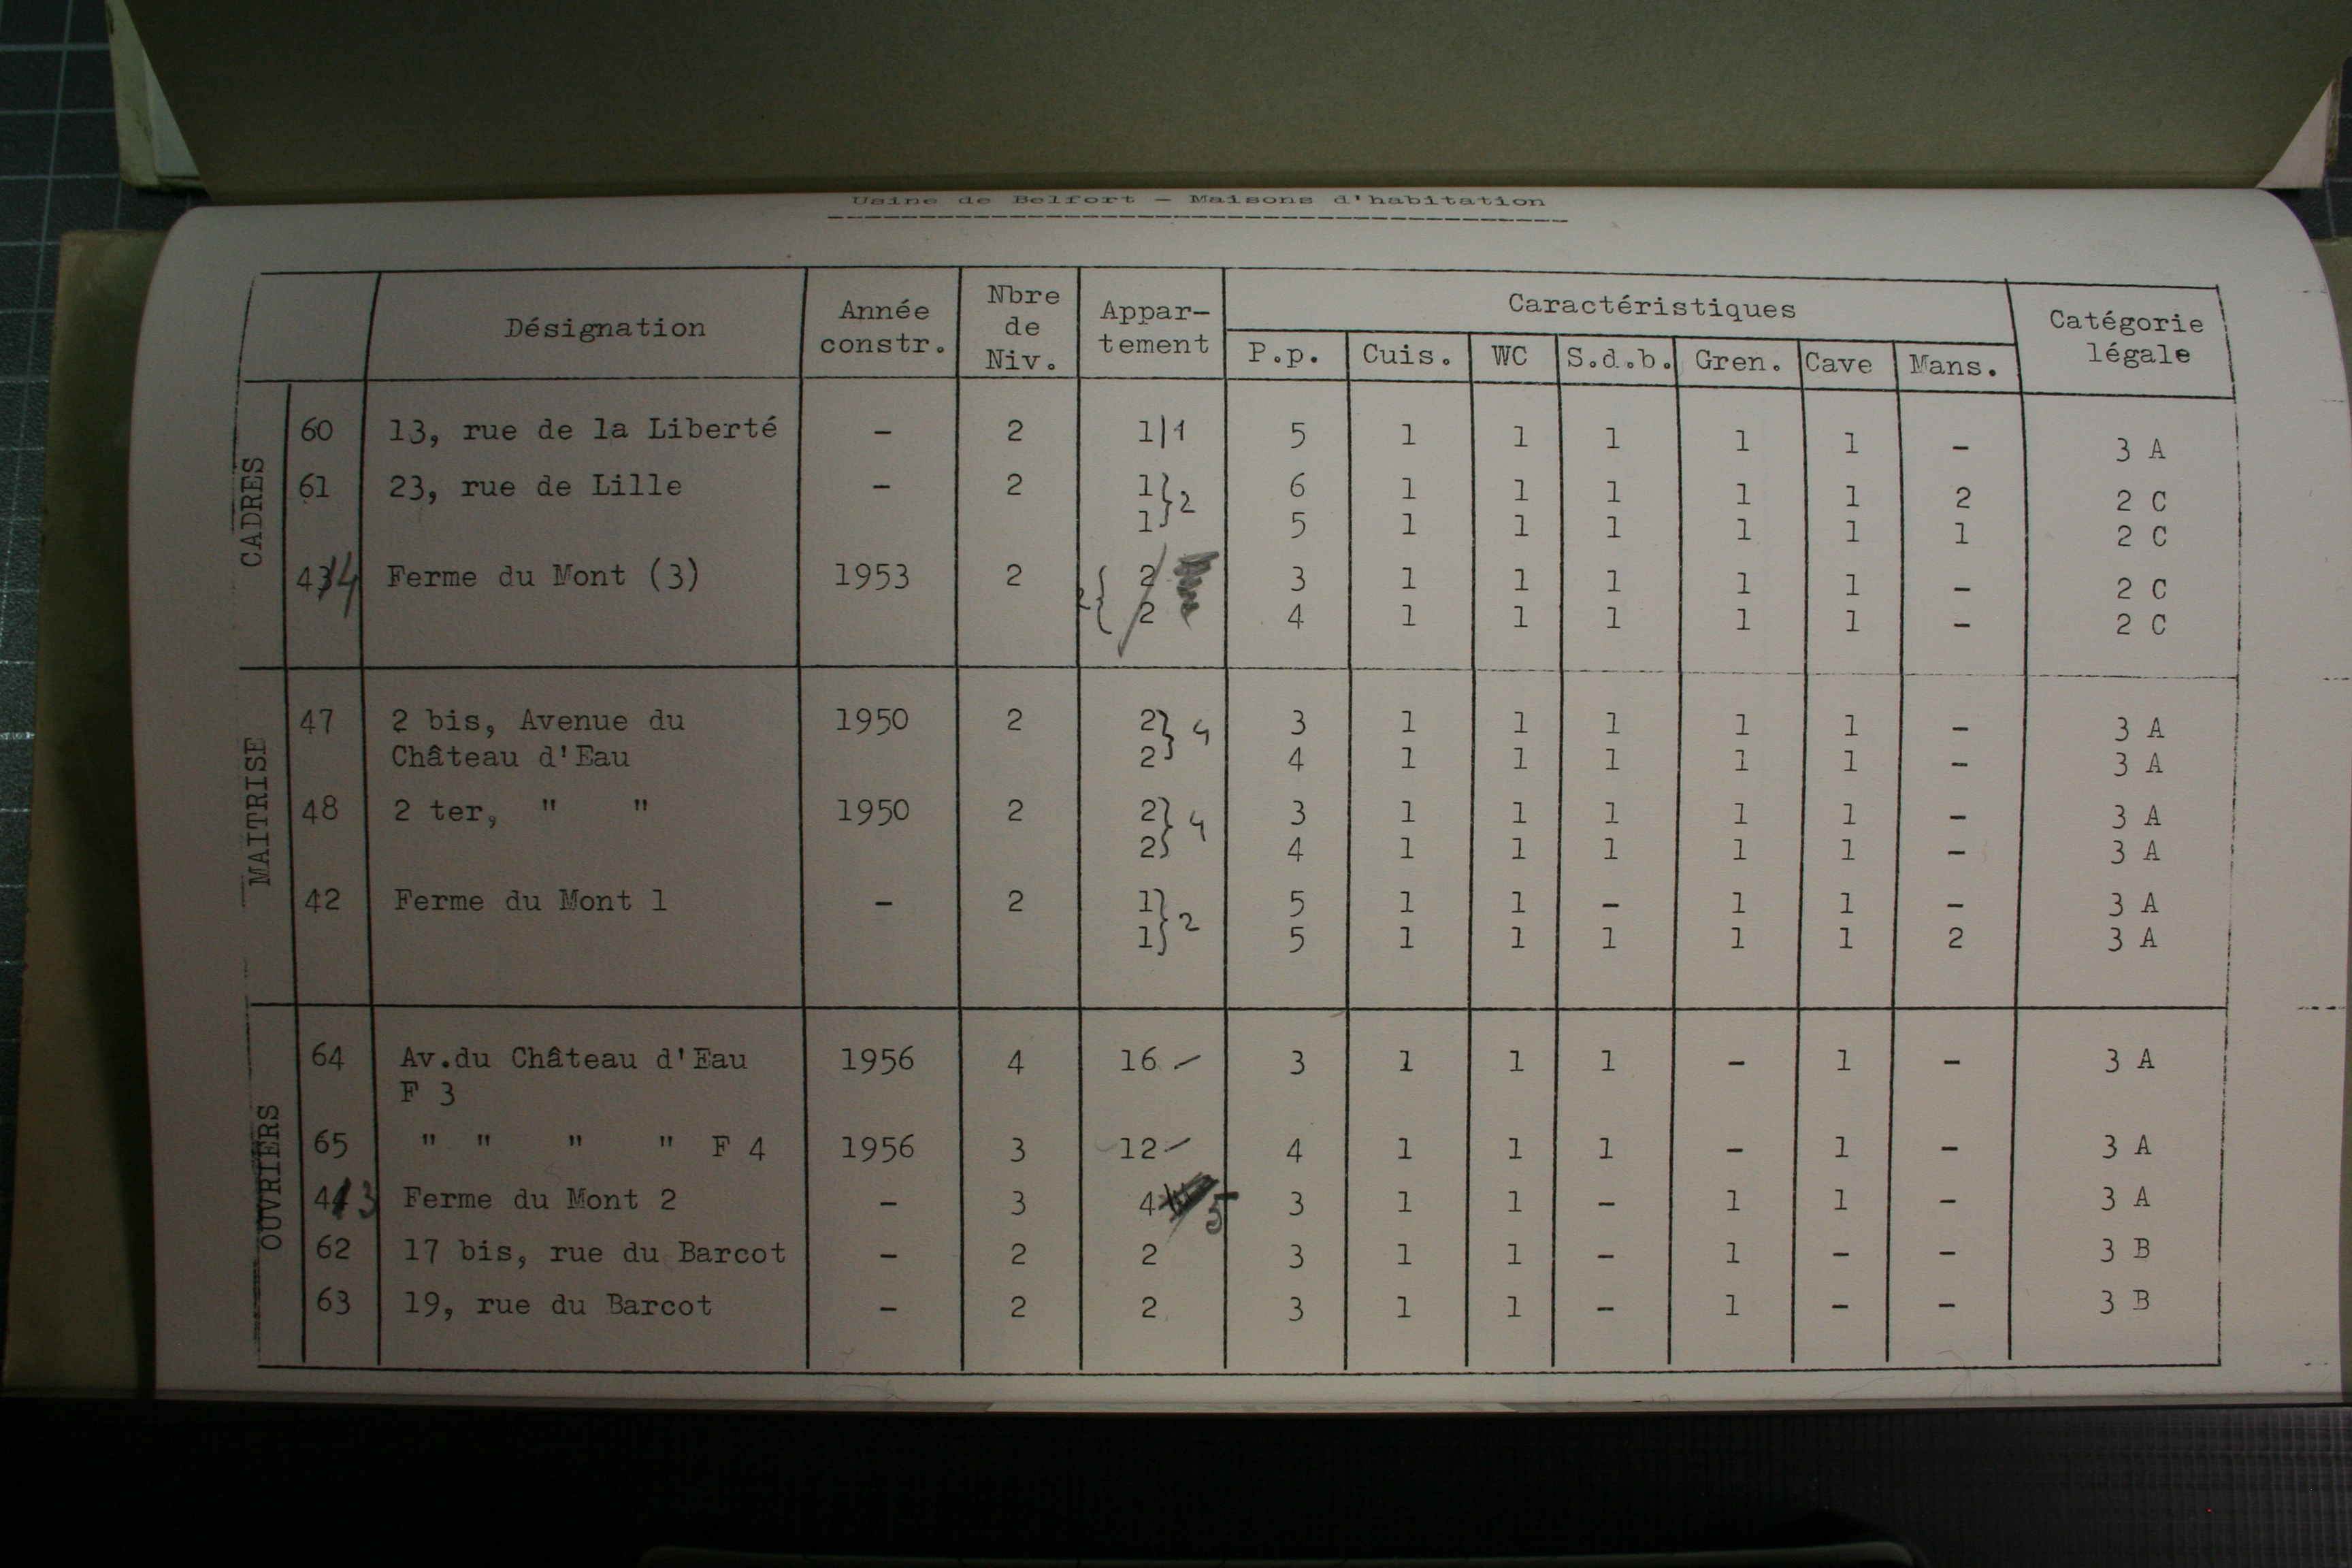 Usine de Belfort - Maisons d'habitation
Désignation | Année constr. | Nbre de Niv. | Appar-tement | Caractéristiques | Catégorie légale
P.p. | Cuis. | WC | S.d.b. | Gren. | Cave | Mans.
CADRES
60 | 13, rue de la Liberté | - | 2 | 1 | 1 | 5 | 1 | 1 | 1 | 1 | 1 | - | 3 A
61 | 23, rue de Lille | - | 2 | 1 } 2 | 6 | 1 | 1 | 1 | 1 | 1 | 2 | 2 C
1 | 5 | 1 | 1 | 1 | 1 | 1 | 1 | 2 C
43 4 | Ferme du Mont (3) | 1953 | 2 | 2 | 3 | 1 | 1 | 1 | 1 | 1 | - | 2 C
2 | 4 | 1 | 1 | 1 | 1 | 1 | - | 2 C
MAITRISE
47 | 2 bis, Avenue du | 1950 | 2 | 2 } 4 | 3 | 1 | 1 | 1 | 1 | 1 | - | 3 A
Château d'Eau | 2 | 4 | 1 | 1 | 1 | 1 | 1 | - | 3 A
48 | 2 ter, " " | 1950 | 2 | 2 } 4 | 3 | 1 | 1 | 1 | 1 | 1 | - | 3 A
2 | 4 | 1 | 1 | 1 | 1 | 1 | - | 3 A
42 | Ferme du Mont 1 | - | 2 | 1 } 2 | 5 | 1 | 1 | - | 1 | 1 | - | 3 A
1 | 5 | 1 | 1 | 1 | 1 | 1 | 2 | 3 A
OUVRIERS
64 | Av.du Château d'Eau | 1956 | 4 | 16 - | 3 | 1 | 1 | 1 | - | 1 | - | 3 A
F 3
65 | " " " " F 4 | 1956 | 3 | 12 - | 4 | 1 | 1 | 1 | - | 1 | - | 3 A
44 3 | Ferme du Mont 2 | - | 3 | 4 5 | 3 | 1 | 1 | - | 1 | 1 | - | 3 A
62 | 17 bis, rue du Barcot | - | 2 | 2 | 3 | 1 | 1 | - | 1 | - | - | 3 B
63 | 19, rue du Barcot | - | 2 | 2 | 3 | 1 | 1 | - | 1 | - | - | 3 B